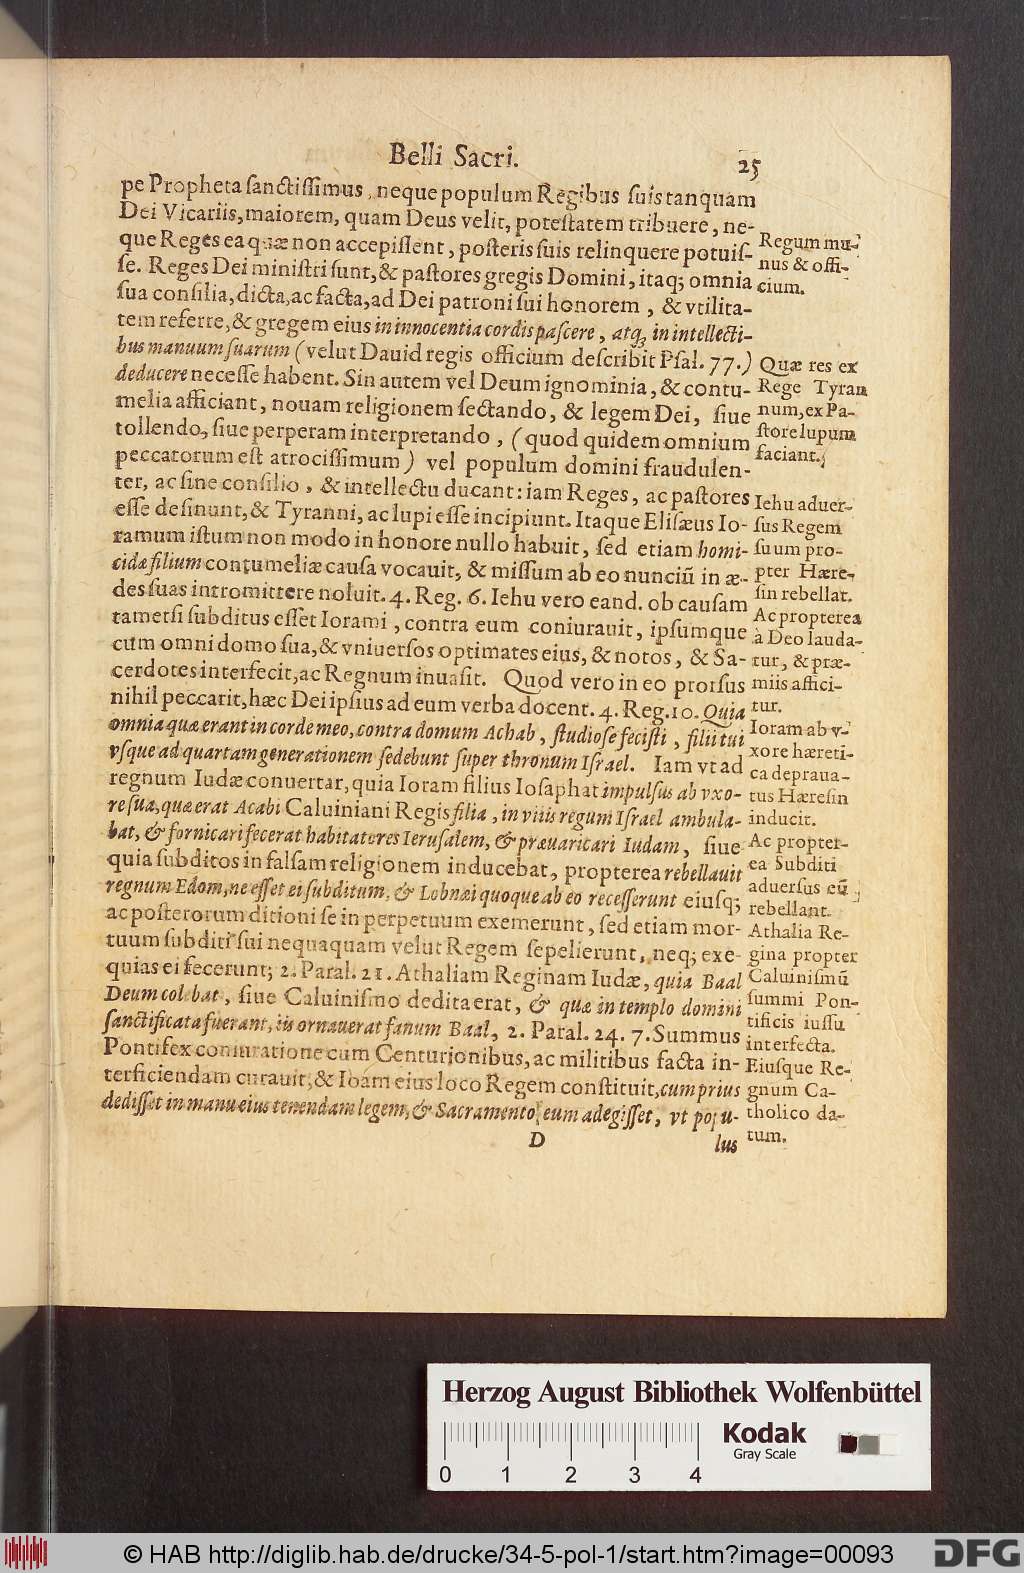 Belli Sacri.
25
pe Propheta ſanctiſſimus, neque populum Regibus ſuis tanquam
Dei Vicariis, maiorem, quam Deus velit, poteſtatem tribuere, ne-
que Reges ea quæ non accepiſſent, poſteris ſuis relinquere potuiſ-
ſe. Reges Dei miniſtri ſunt, & paſtores gregis Domini, itaq; omnia
ſua conſilia, dicta, ac facta, ad Dei patroni ſui honorem, & vtilita-
tem referre, & gregem eius in innocentia cordis paſcere, atq; in intellecti-
bus manuum ſuarum (velut Dauid regis officium deſcribit Pſal. 77.)
deducere neceſſe habent. Sin autem vel Deum ignominia, & contu-
melia afficiant, nouam religionem ſectando, & legem Dei, ſiue
tollendo, ſiue perperam interpretando, (quod quidem omnium
peccatorum eſt atrociſſimum) vel populum domini fraudulen-
ter, ac ſine conſilio, & intellectu ducant: iam Reges, ac paſtores
eſſe deſinunt, & Tyranni, ac lupi eſſe incipiunt. Itaque Eliſæus Io-
ramum iſtum non modo in honore nullo habuit, ſed etiam homi-
cidæ filium contumeliæ cauſa vocauit, & miſſum ab eo nunciū in æ-
des ſuas intromittere noluit. 4. Reg. 6. Iehu vero eand. ob cauſam
tametſi ſubditus eſſet Iorami, contra eum coniurauit, ipſumque
cum omni domo ſua, & vniuerſos optimates eius, & notos, & Sa-
cerdotes interfecit, ac Regnum inuaſit. Quod vero in eo prorſus
nihil peccarit, hæc Dei ipſius ad eum verba docent. 4. Reg. 10. Quia
omnia quæ erant in corde meo, contra domum Achab, ſtudioſe feciſti, filii tui
vſque ad quartam generationem ſedebunt ſuper thronum Iſrael. Iam vt ad
regnum Iudæ conuertar, quia Ioram filius Ioſaphat impulſus ab vxo-
re ſua, quæ erat Acabi Caluiniani Regis filia, in viiis regum Iſrael ambula-
bat, & fornicari fecerat habitatores Ieruſalem, & præuaricari Iudam, ſiue
quia ſubditos in falſam religionem inducebat, propterea rebellauit
regnum Edom, ne eſſet ei ſubditum, & Lobnæi quoque ab eo receſſerunt eiuſq;
ac poſterorum ditioni ſe in perpetuum exemerunt, ſed etiam mor-
tuum ſubditi ſui nequaquam velut Regem ſepelierunt, neq; exe-
quias ei fecerunt; 2. Paral. 21. Athaliam Reginam Iudæ, quia Baal
Deum colebat, ſiue Caluiniſmo dedita erat, & quæ in templo domini
ſanctificata fuerant, iis ornauerat fanum Baal, 2. Paral. 24. 7. Summus
Pontifex coniuratione cum Centurionibus, ac militibus facta in-
terficiendam curauit, & Ioam eius loco Regem conſtituit, cum prius
dediſſet in manu eius tenendam legem, & Sacramento eum adegiſſet, vt popu-
D
lus
Regum mu-
nus & offi-
cium.
Quæ res ex
Rege Tyran
num, ex Pa-
ſtore lupum
faciant.
Iehu aduer-
ſus Regem
ſuum pro-
pter Hære-
ſin rebellat.
Ac propterea
à Deo lauda-
tur, & præ-
miis affici-
tur.
Ioram ab v-
xore hæreti-
ca deprava-
tus Hæreſin
inducit.
Ac propter-
ea Subditi
aduerſus eū
rebellant.
Athalia Re-
gina propter
Caluiniſmū
ſummi Pon-
tificis iuſſu
interfecta.
Eiuſque Re-
gnum Ca-
tholico da-
tum.
Herzog August Bibliothek Wolfenbüttel
Kodak
Gray Scale
0 1 2 3 4
© HAB http://diglib.hab.de/drucke/34-5-pol-1/start.htm?image=00093
DFG